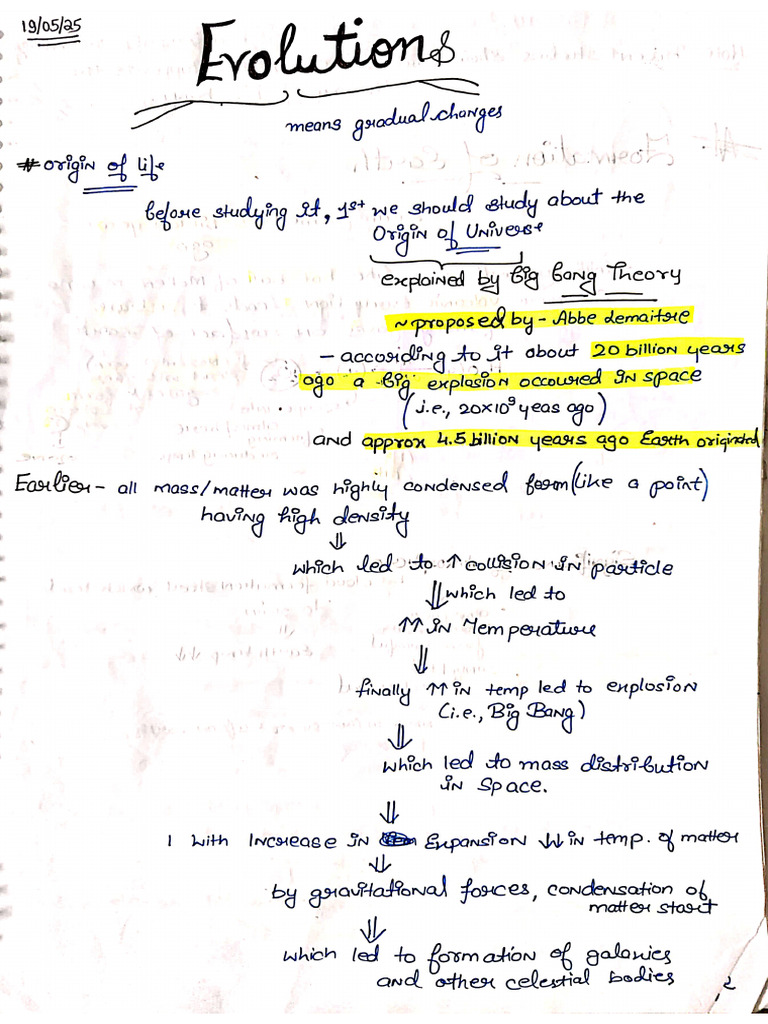 19/05/25
Evolutions
means gradual changes
# Origin of life
before studying it, 1st we should study about the
Origin of Universe
explained by Big Bang Theory
~ proposed by - Abbe Lemaitre
- according to it about 20 billion years
ago a big explosion occoured in space
(i.e., 20×10⁹ yeas ago)
and approx 4.5 billion years ago Earth originated
Earlier - all mass/matter was highly condensed form (like a point)
having high density
⇓
which led to ↑ collision in particle
⇓ which led to
↑↑ in Temperature
⇓
finally ↑↑ in temp led to explosion
(i.e., Big Bang)
⇓
which led to mass distribution
in space.
⇓
1 with Increase in Expansion ↓↓ in temp. of matter
⇓
by gravitational forces, condensation of
matter start
⇓
which led to formation of galaxies
and other celestial bodies